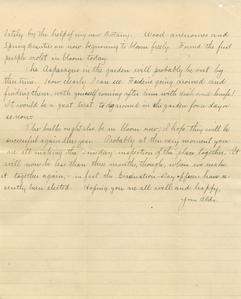 lately by the help of my new Botany. Wood anemones and
Spring Beauties are now beginning to bloom freely. Found the first
purple violet in bloom today.
The Asparagus in the garden will probably be out by
this time. How clearly I can see Father going around and
finding them, with myself coming after him with dish and knife!
It would be a great treat to go around in the garden for a day or
so now.
The bulbs ought also be in bloom now; I hope they will be
successful again this year. Probably at this very moment you
are all making the Sunday inspection of the place together. It
will now be less than three months, though, when we make
it together again, - in fact the Graduation-day officers have
recently been elected. Hoping you are all well and happy,
Your Aldo.